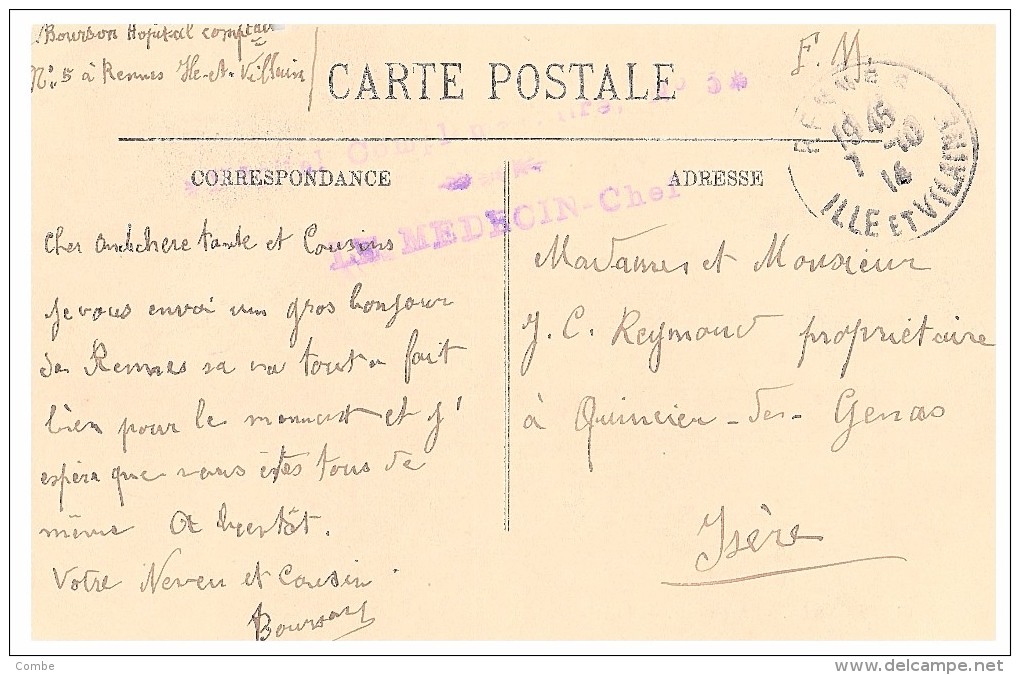 Bourson Hopital compt
No 5 à Rennes Ile-et-Villaine
F. M.
CARTE POSTALE
RENNES
19 45
7 -10
14
ILLE ET VILAINE
No 5*
LE MEDECIN-Chef
CORRESPONDANCE
ADRESSE
Cher chere tante et Cousins
je vous envoi un gros bonjour
de Rennes sa va tout a fait
bien pour le moment et j'
espère que vous êtes tous de
même A bientôt.
Votre Neveu et Cousin.
Bourson
Madames et Monsieur
J. C. Reymond propriétaire
à Quincier-des-Genas
Isère
Combe
www.delcampe.net